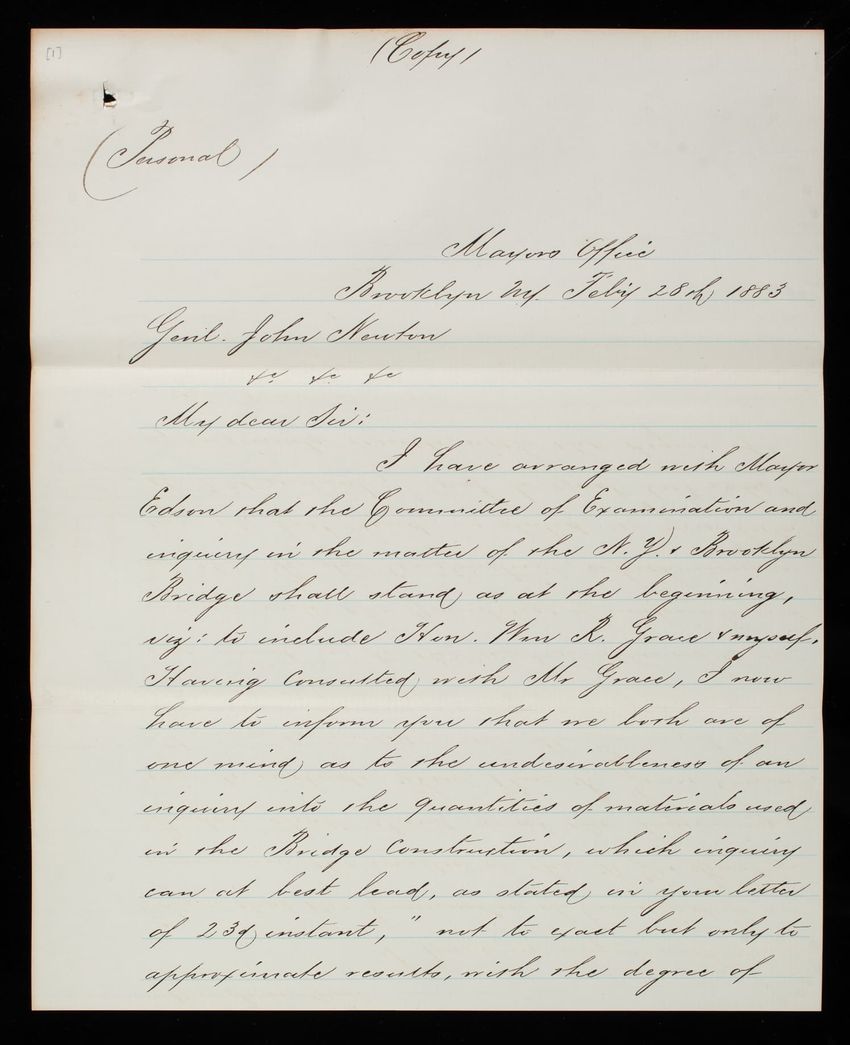 [1]
(Copy)
(Personal)
Mayors Office
Brooklyn NY. Feb'y 28th 1883
Genl. John Newton
&c &c &c
My dear Sir:
I have arranged with Mayor
Edson that the Committee of Examination and
inquiry in the matter of the N.Y. & Brooklyn
Bridge shall stand as at the beginning,
viz: to include Hon. Wm R. Grace & myself.
Having consulted with Mr Grace, I now
have to inform you that we both are of
one mind as to the undesirableness of an
inquiry into the quantities of materials used
in the Bridge construction, which inquiry
can at best lead, as stated in your letter
of 23d instant, "not to exact but only to
approximate results, with the degree of